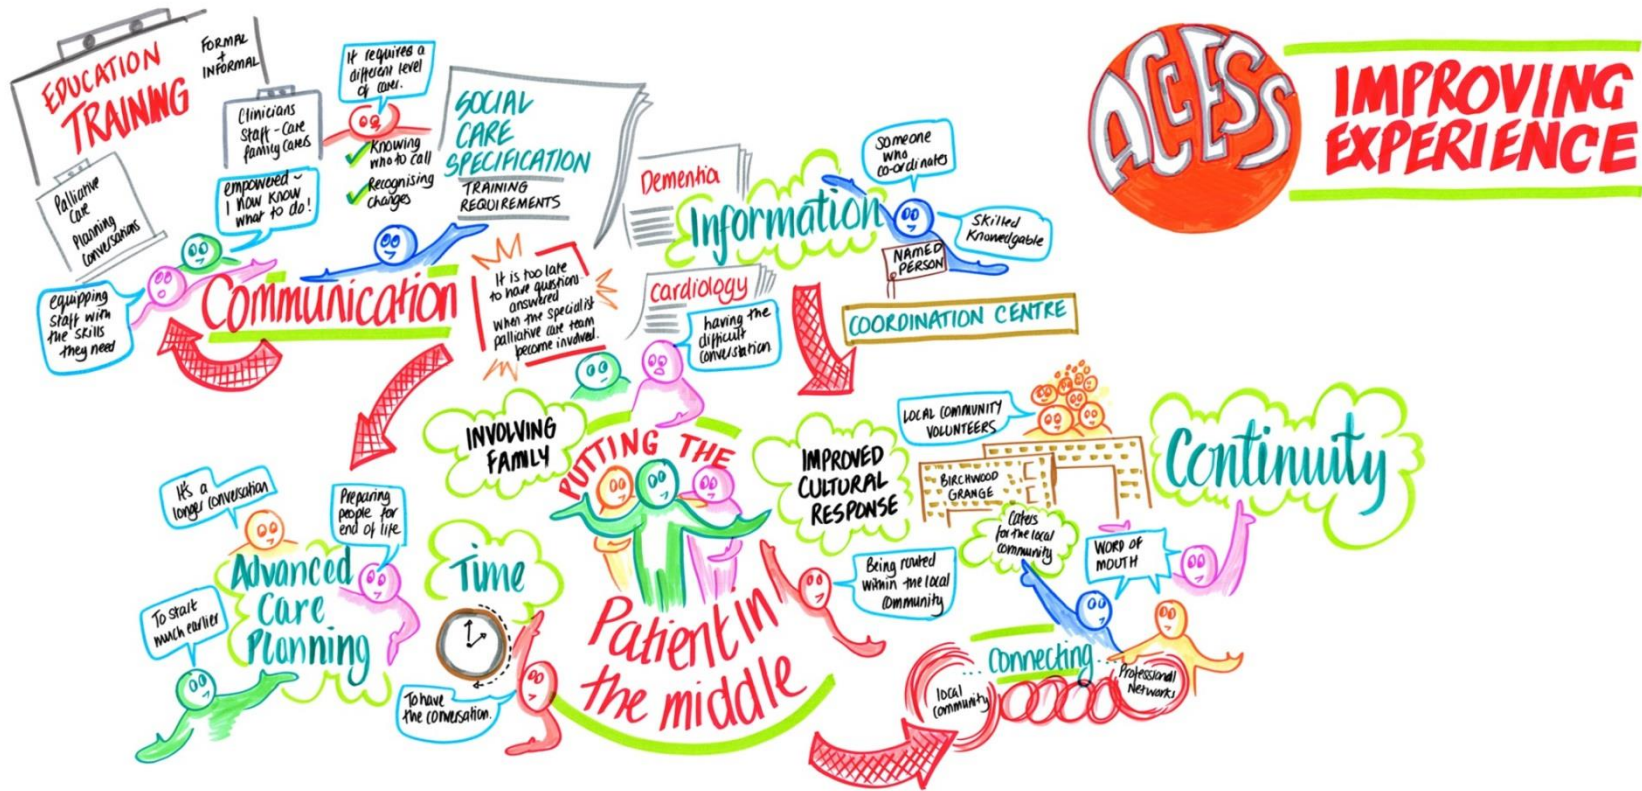 EDUCATION
TRAINING
FORMAL
+
INFORMAL
Clinicians
Staff - Care
family Carers
It requires a
different level
of care.
Knowing
who to call
Recognising
changes
Palliative
Care
Planning
Conversations
empowered ~
I now know
what to do!
equipping
staff with
the skills
they need
Communication
SOCIAL
CARE
SPECIFICATION
TRAINING
REQUIREMENTS
It is too late
to have questions
answered
when the specialist
palliative care team
become involved.
Dementia
Information
Cardiology
having the
difficult
conversation
Someone
who
co-ordinates
Skilled
Knowledgable
NAMED
PERSON
COORDINATION CENTRE
ACCESS
IMPROVING
EXPERIENCE
INVOLVING
FAMILY
PUTTING THE
Patient in
the middle
IMPROVED
CULTURAL
RESPONSE
LOCAL COMMUNITY
VOLUNTEERS
BIRCHWOOD
GRANGE
Continuity
Caters
for the local
community
WORD OF
MOUTH
Being routed
within the local
Community
Connecting...
local
Community
Professional
Networks
It's a
longer conversation
Preparing
people for
end of life
Advanced
Care
Planning
To start
much earlier
Time
To have
the conversation.